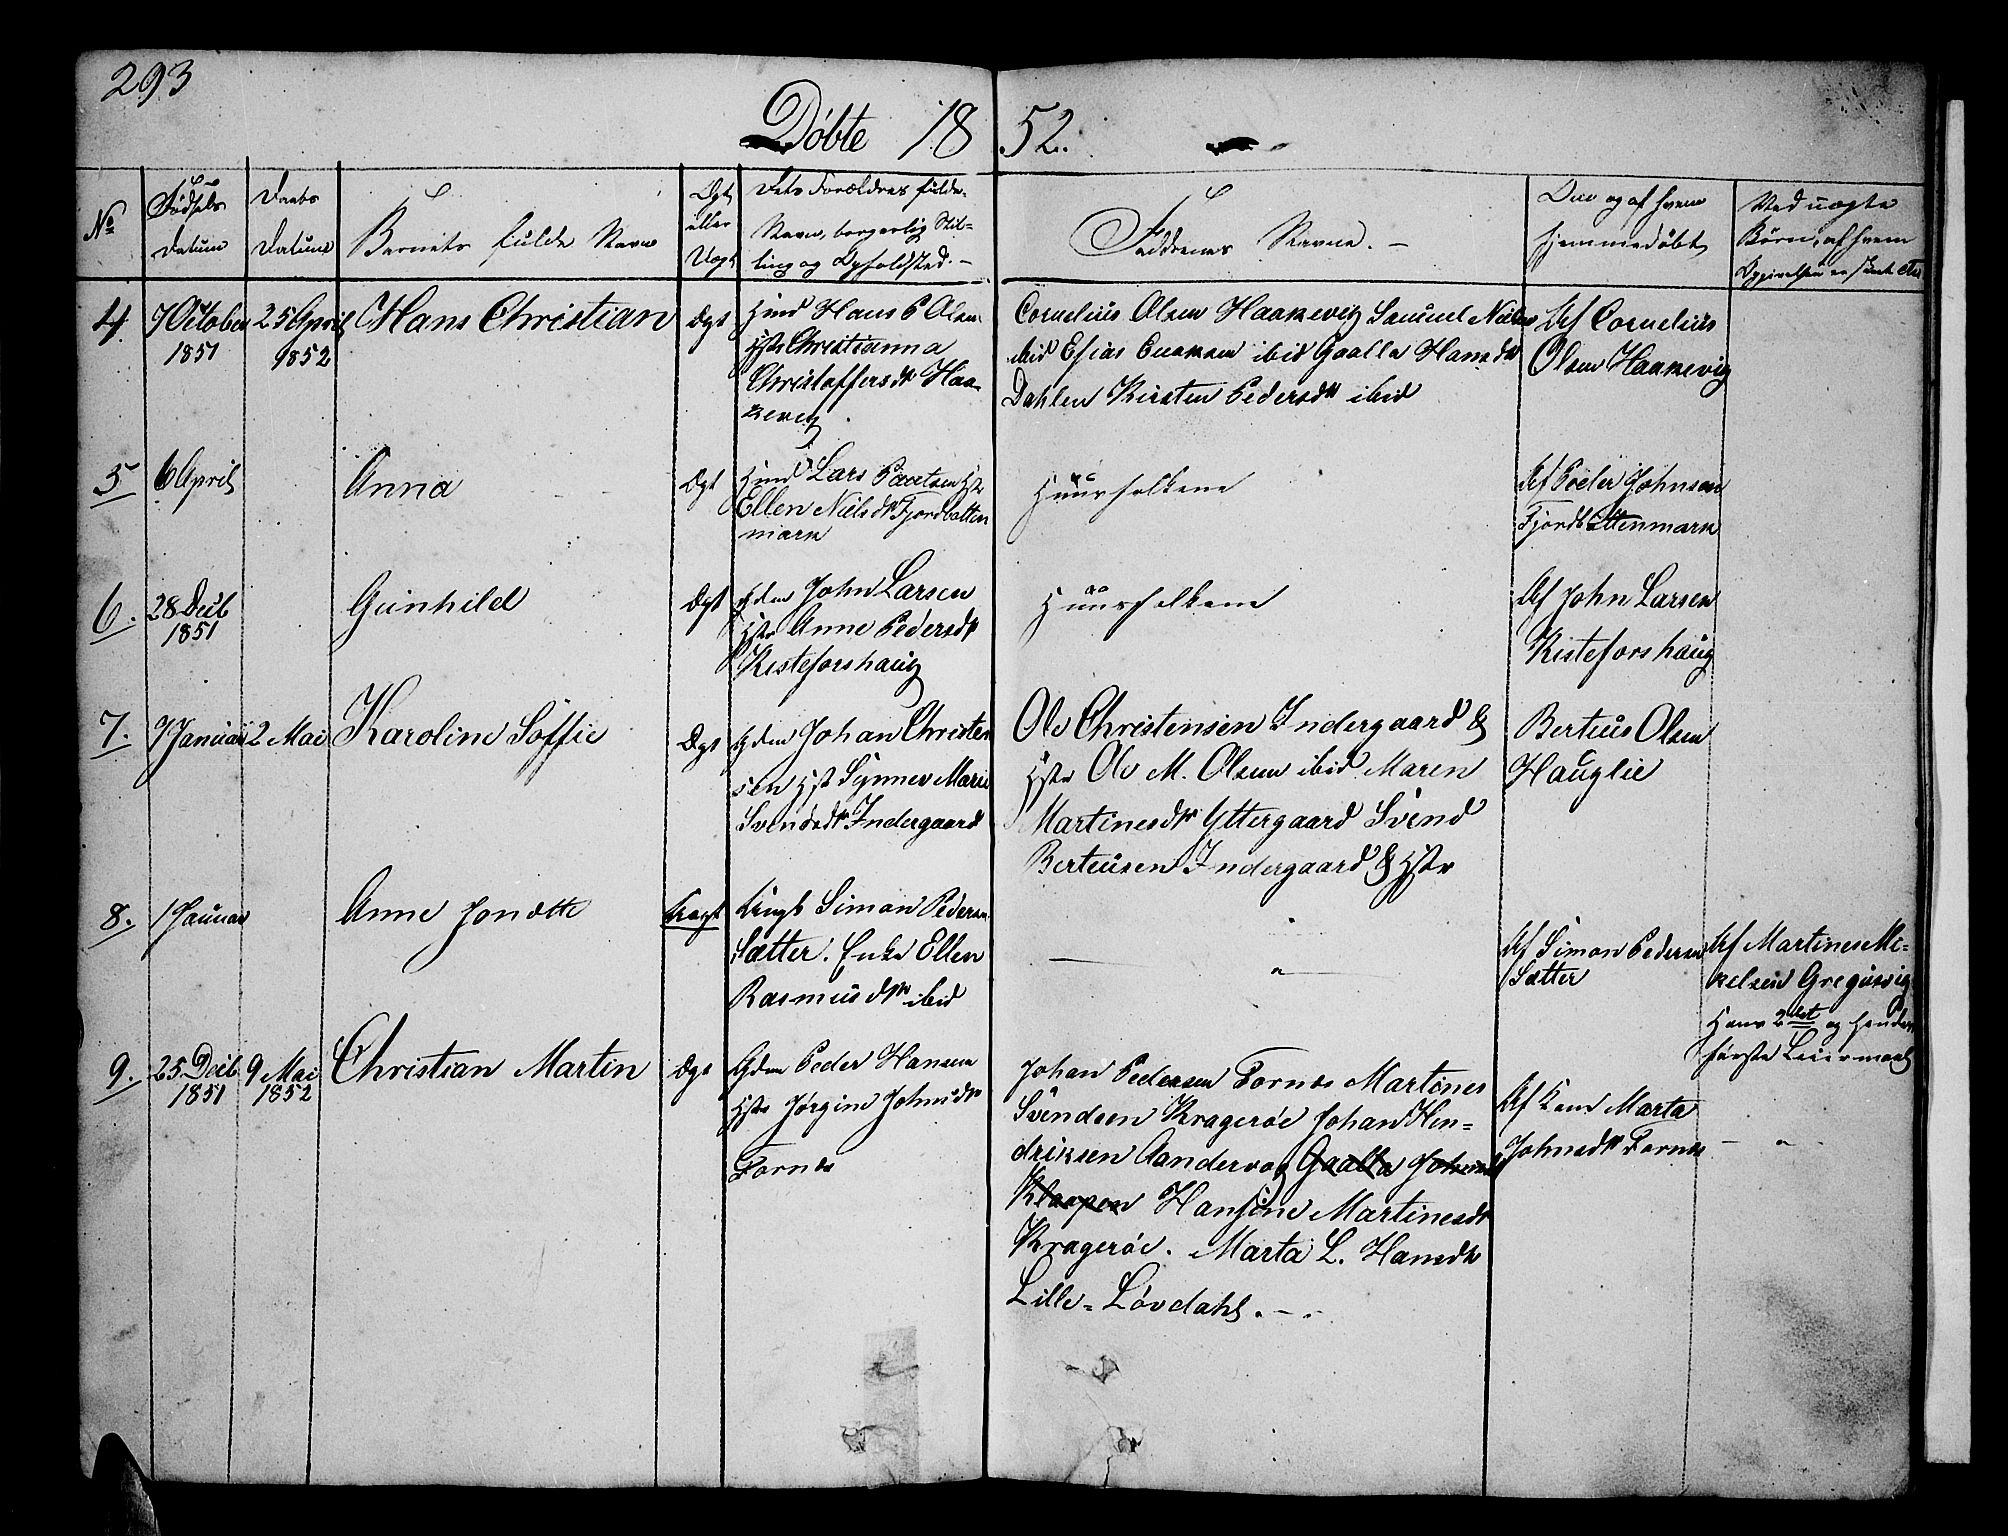 293
Døbte 1852.
No
Fødsels
Datum
Daabs
Datum
Barnets fulde Navn
Ægt
eller
Uægt
Dets Forældres fulde
Navn, borgerlig Stil-
ling og Opholdsted. -
Faddrenes Navne. -
Om og af hvem
hjemmedøbt
Ved uægte
Børn, af hvem
4. 7 October 25 April Hans Christian Ægt
1851 1852
Hmd Hans P Olsen
Hstr Christianna
Christaffersdtr Haa-
kevig
Cornelius Olsen Haakevig Samuel Niels
ibid Esias ibid Gaalla Hansdtr
Dahlen Kirsten Pedersdtr ibid
Af Cornelius
Olsen Haakevig
5 6 April Anna Ægt
Hmd Lars Hstr
Ellen Nielsdtr Fjordbotten
mark
Huusfolkene
Af Peder Johnsen
Fjordbottenmark
6. 28 Decb Gunhild Ægt
1851
Gdm John Larsen
Hstr Anne Pedersdtr
Kisteforshaug
Huusfolkene
Af John Larsen
Kisteforshaug
7. 7 Januar 2 Mai Karoline Søffie Ægt
Gdm Johan Christen
sen Hst Synnev Marie
Svendsdtr Indergaard
Ole Christensen Indergaard &
Hstr Ole M. Olsen ibid Maren
Martinesdtr Yttergaard Svend
Berteusen Indergaard & Hstr
Berteus Olsen
Hauglie
8. 1 Januar Anne Jonette Uægt
Ungk Simon Peders
Sætter. Enke Ellen
Rasmusdtr ibid
Af Simon Pedersen
Sætter
Af Martines Mi-
kelsen Gregusvig
Hans 2det og hendes
første Leiermaal
9. 25 Decb 9 Mai Christian Martin Ægt
1851 1852
Gdm Peder Hansen
Hstr Jørgine Johnsdtr
Fornes
Johan Pedersen Fornes Martines
Svendsen Kragerøe Johan Hen-
driksen Aandervag Gaalla
Klaapen Hansine Martinesdtr
Kragerøe. Marta L. Hansdtr
Lille-Løvdahl. - .
Af Marta
Johnsdtr Fornes